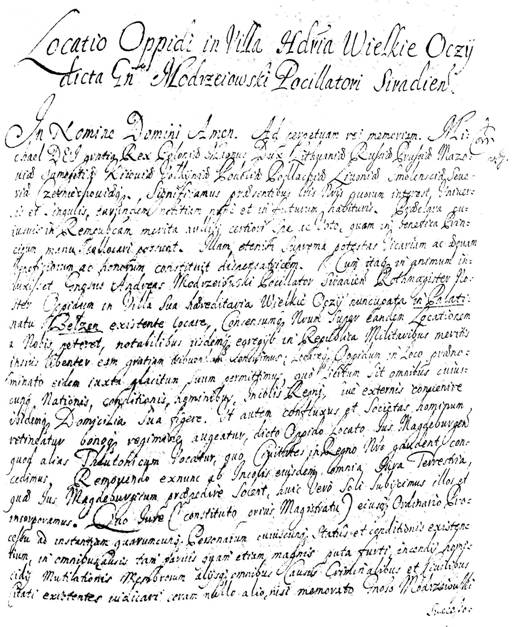 Locatio Oppidi in Villa Hdria Wielkie Oczÿ
dicta Gn Modrzeiowski Pocillatori Siradien
In Nomine Domini Amen. Ad perpetuam rei memoriam. Mi-
chael DEI gratia Rex Poloniæ Magnus Dux Lithuaniæ Russiæ Prussiæ Mazo-
viæ Samogitiæ Kiioviæ Volhyniæ Podoliæ Podlachiæ Livoniæ Smolensciæ Seve-
riæ Czerniechoviæq Significamus præsentibus quorum interest, Univer-
sis et singulis, notitiam et in futurum habituris.
in Rempublicam merita certiori Spe ac loco, quam in benefica Prin-
cipum manu collocari possunt. Illam etenim Suprema potestas Vicariam ac
beneficiorum ac honorum constituit dispensatricem. Cum itaq in animum in-
duxisset Gnosus Andreas Modrzeiowski Pocillator Siradien Rothmagister No-
ster Oppidum in Villa Sua hæreditaria Wielkie Oczÿ nuncupata in Palati-
natu Belzen existente locare, Consensumq Nrum Super eandem Locationem
a Nobis peteret, notabilibus eiusdem egregijs in Republica Militaribus meritis
libenter eam gratiam Oppidum in Loco præno-
minato eidem iuxta placitum suum permittimus, quo licitum Sit omnibus cuius-
cunq Nationis, conditionis, hominibus, Incolis Regni, sive externis convenire
ibidemq Domicilia Sua figere. Ut autem confluxus et Societas hominum
retineatur bonoq regimine augeatur, dicto Oppido Locato Jus Magdeburgen
quod alias Theutonicum vocatur, quo Civitates in Regno Nro gaudent con-
cedimus, Removendo exnunc ab Incolis eiusdem omnia Jura Terrestria,
quæ Jus Magdeburgicum præpedire Solent, huic Vero Soli Subijcimus illos et
incorporamus. Quo Jure (constituto prius Magistratu) eiusq Ordinario Pro-
cessu ad instantiam quarumcunq Personarum cuiuscunq Status et conditionis existen-
tium in omnibus causis tam parvis quam etiam magnis puta furti incendij homi-
cidij Mutilationis Membrorum alijsq omnibus Causis Criminalibus et Civilibus
Citati existentes iudicari coram nullo alio, nisi memorato Gnoso Modrzeiowski